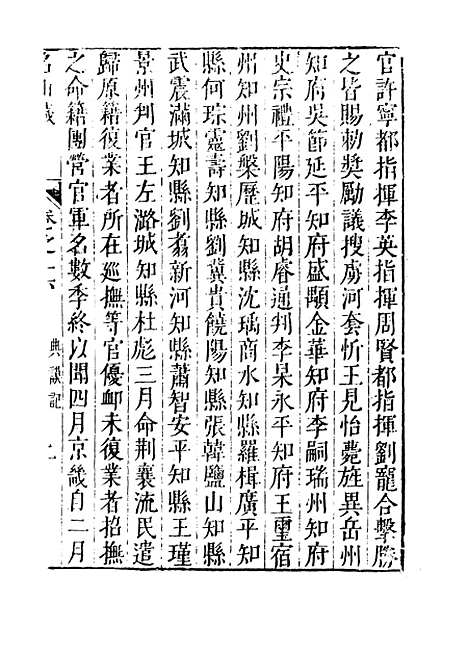 官許寧都指揮李英指揮周賢都指揮劉寵合擊勝
之皆賜勅奬勵議搜虜河套忻王見怡薨旌異岳州
知府吳節延平知府盛顒金華知府李嗣瑞州知府
史宗禮平陽知府胡睿通判李杲永平知府王璽宿
州知州劉槃歷城知縣沈瑀商水知縣羅楫廣平知
縣何琮靈壽知縣劉冀貴饒陽知縣張韓鹽山知縣
武震滿城知縣劉翥新河知縣蕭智安平知縣王瑾
景州判官王左潞城知縣杜彪三月命荆襄流民遣
歸原籍復業者所在廵撫等官優衈未復業者招撫
之命籍團營官軍名數季終以聞四月京畿自二月
名山藏
卷之十六
典謨記